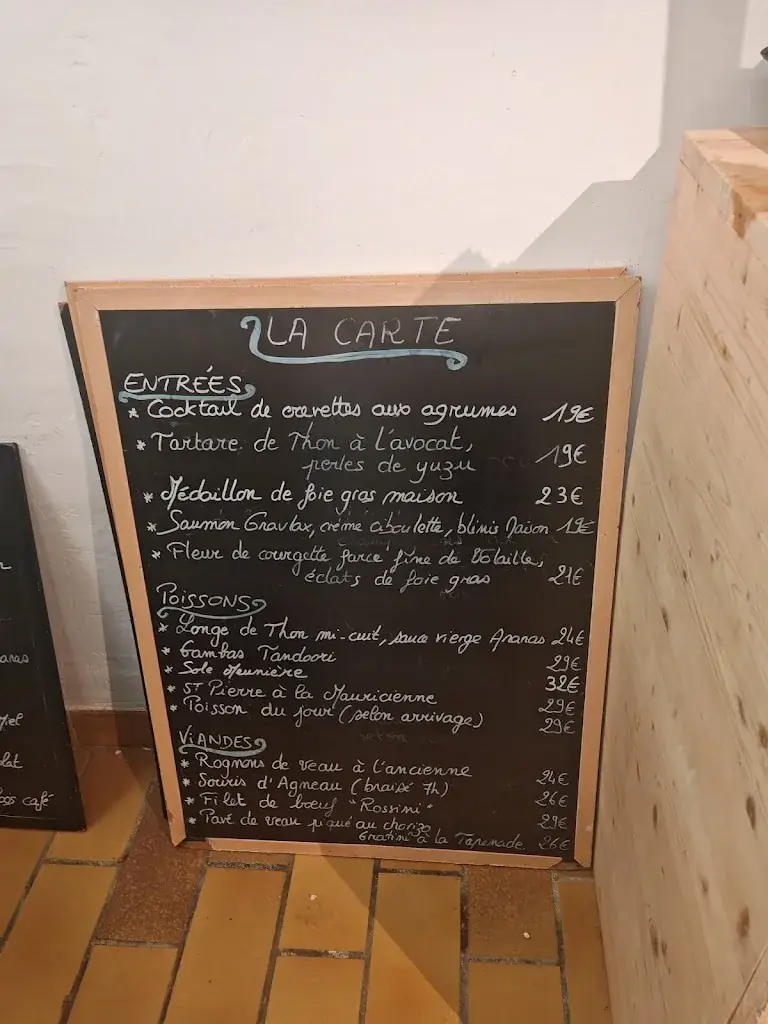 LA CARTE
ENTRÉES
* Cocktail de crevettes aux agrumes 19€
* Tartare de Thon à l'avocat,
perles de yuzu 19€
* Médaillon de foie gras maison 23€
* Saumon Gravlax, crème ciboulette, blinis Maison 19€
* Fleur de courgette farce fine de Volaille,
éclats de foie gras 21€
POISSONS
* Longe de Thon mi-cuit, sauce vierge Ananas 24€
* Gambas Tandoori 29€
* Sole Meunière 32€
* ST Pierre à la Mauricienne 29€
* Poisson du jour (selon arrivage) 29€
VIANDES
* Rognons de veau à l'ancienne 24€
* Souris d'Agneau (braisé 7h) 26€
* Filet de bœuf "Rossini" 29€
* Pavé de veau piqué au chorizo
Gratiné à la Tapenade 26€
anas
Miel
lat
pos café